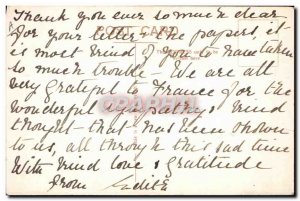 Thank you ever so much dear
for your letter & the papers, it
is most kind of you to have taken
so much trouble. We are all
very grateful to France for the
wonderful sympathy & kind
thought that has been shown
to us, all through this sad time
With kind love & gratitude
from Edith